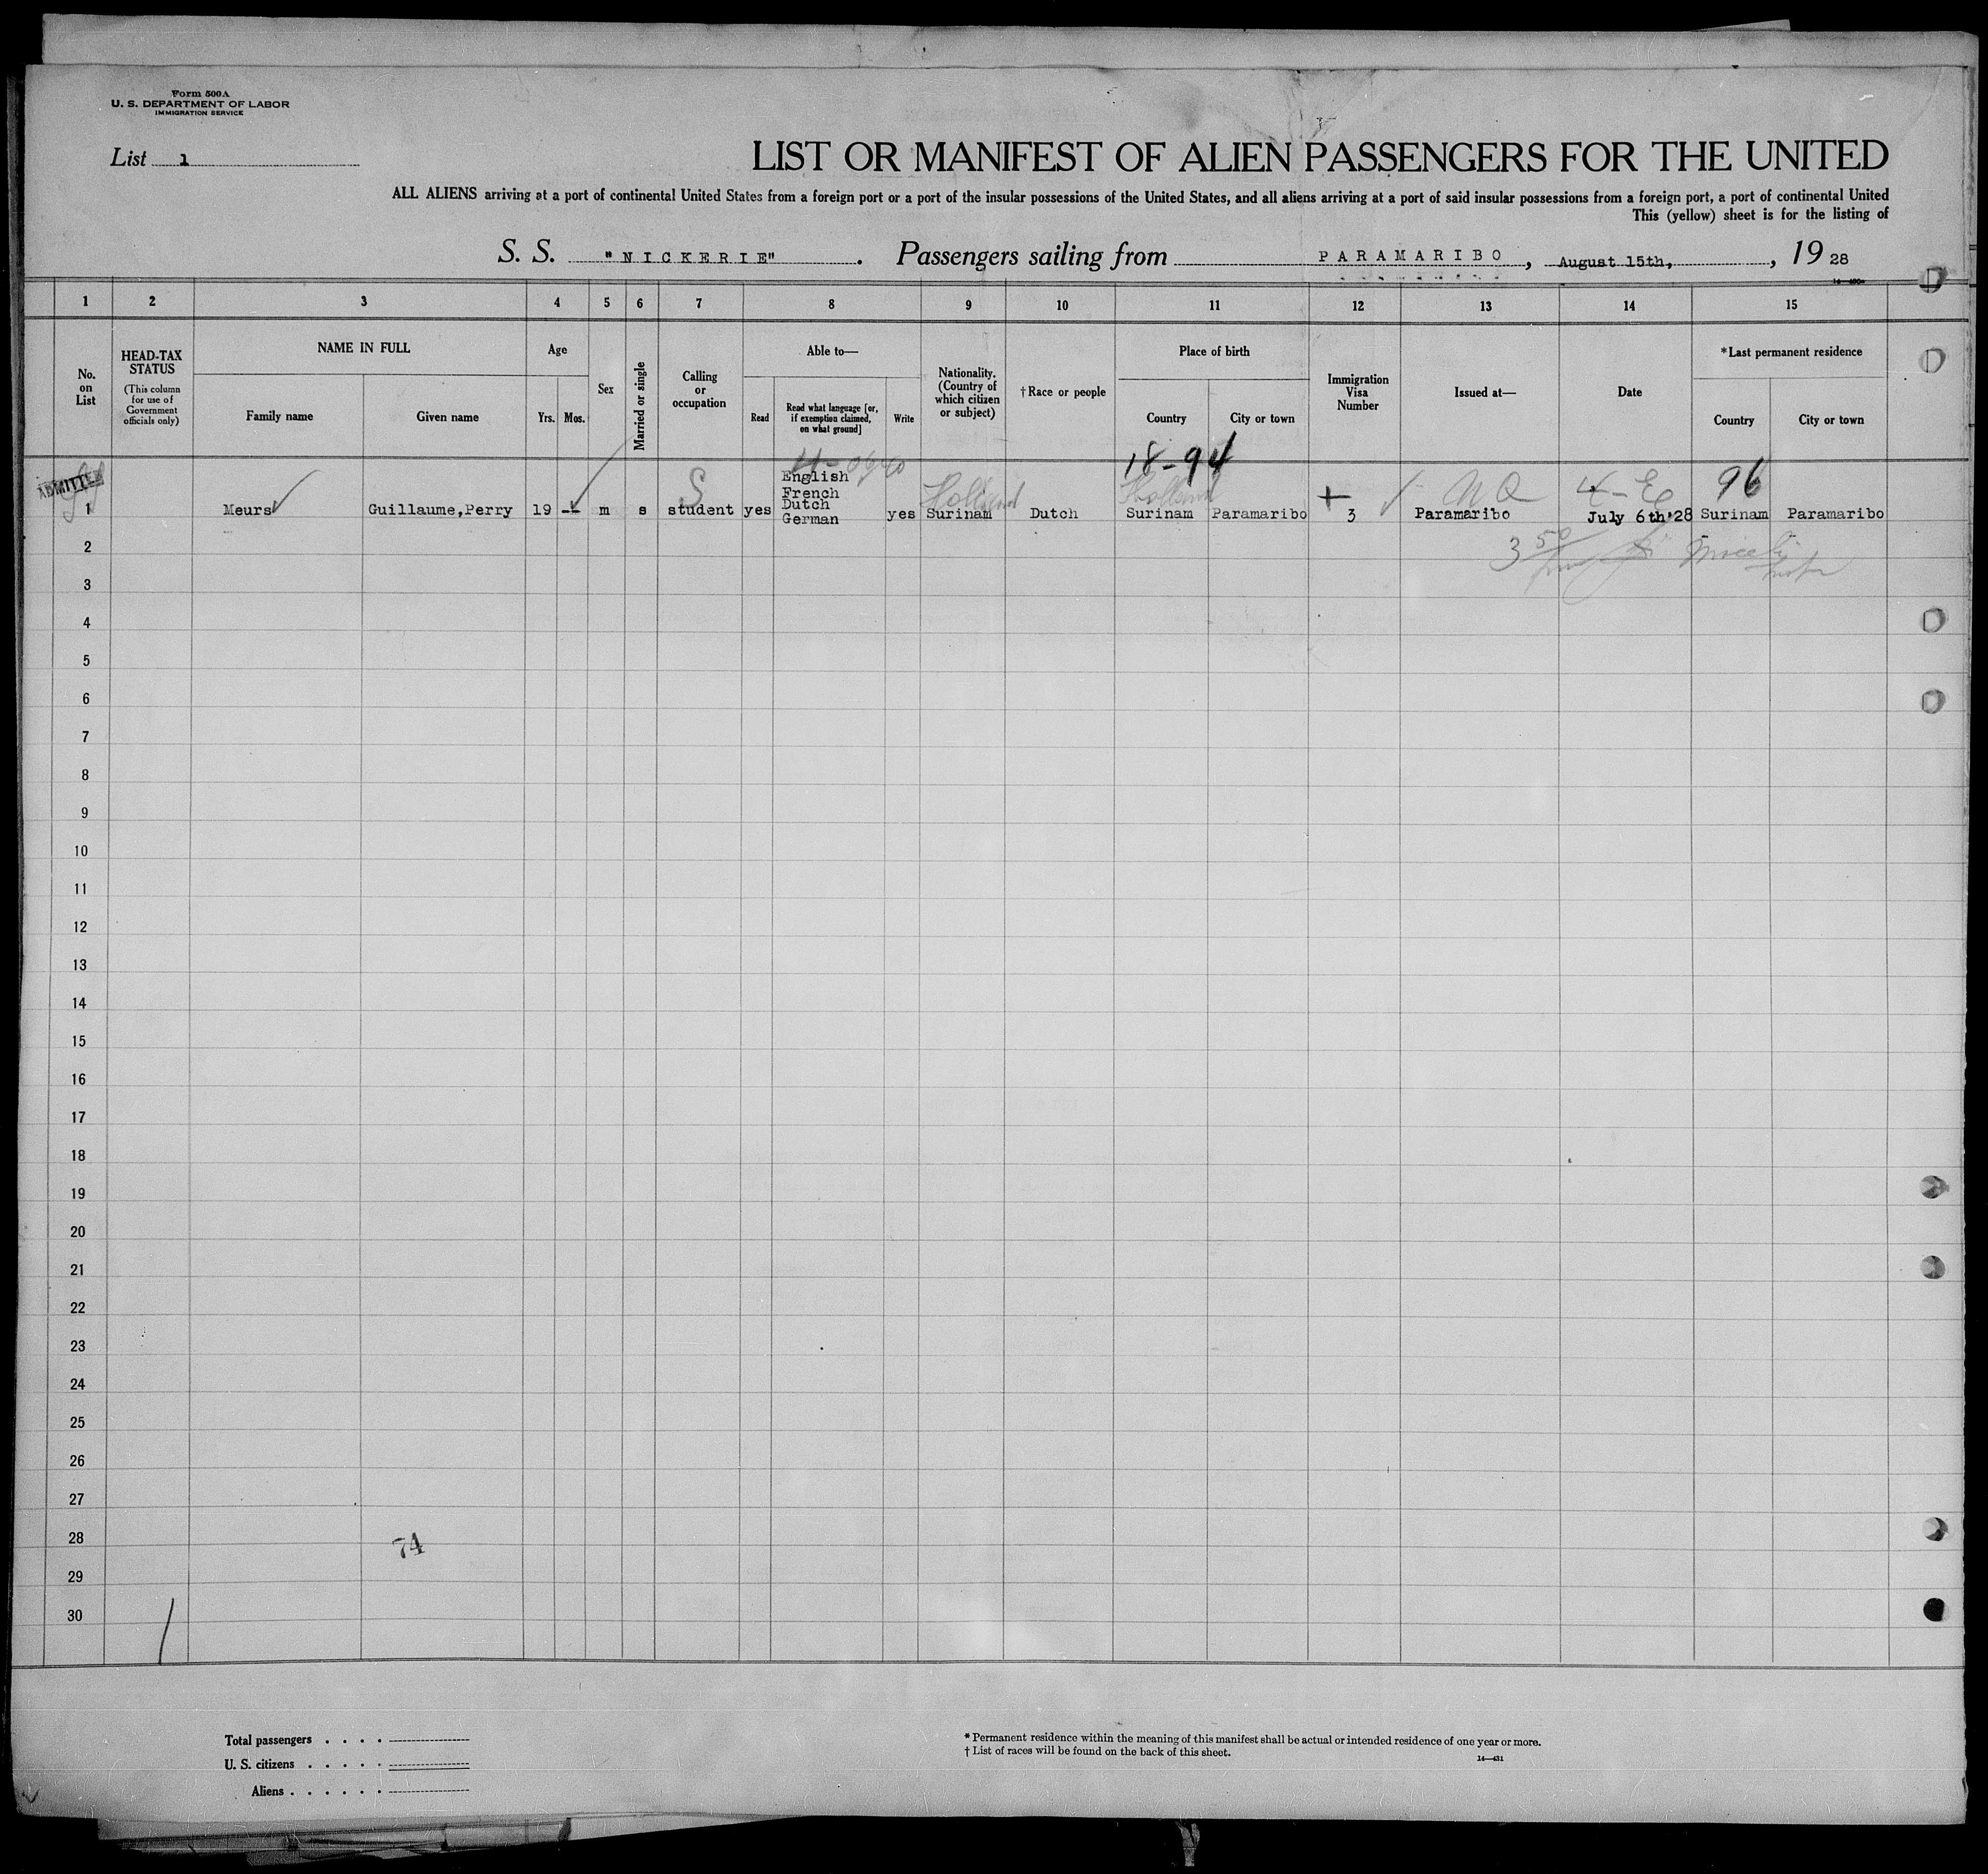 Form 500A
U. S. DEPARTMENT OF LABOR
IMMIGRATION SERVICE
List 1
LIST OR MANIFEST OF ALIEN PASSENGERS FOR THE UNITED
ALL ALIENS arriving at a port of continental United States from a foreign port or a port of the insular possessions of the United States, and all aliens arriving at a port of said insular possessions from a foreign port, a port of continental United
This (yellow) sheet is for the listing of
S. S. "NICKERIE". Passengers sailing from PARAMARIBO, August 15th, , 19 28
1 2 3 4 5 6 7 8 9 10 11 12 13 14 15
No. on List
HEAD-TAX STATUS
(This column for use of Government officials only)
NAME IN FULL
Family name
Given name
Age
Yrs.
Mos.
Sex
Married or single
Calling or occupation
Able to—
Read
Read what language [or, if exemption claimed, on what ground]
Write
Nationality. (Country of which citizen or subject)
† Race or people
Place of birth
Country
City or town
Immigration Visa Number
Issued at—
Date
*Last permanent residence
Country
City or town
18-94
ADMITTED
S
Holland
Holland
N Q
96
1 Meurs Guillaume,Perry 19 -- m s student yes English French Dutch German yes Surinam Dutch Surinam Paramaribo 3 Paramaribo July 6th'28 Surinam Paramaribo
3 50
2
3
4
5
6
7
8
9
10
11
12
13
14
15
16
17
18
19
20
21
22
23
24
25
26
27
28
74
29
30
Total passengers . . . .
U. S. citizens . . . . .
Aliens . . . . . .
* Permanent residence within the meaning of this manifest shall be actual or intended residence of one year or more.
† List of races will be found on the back of this sheet.
14—431